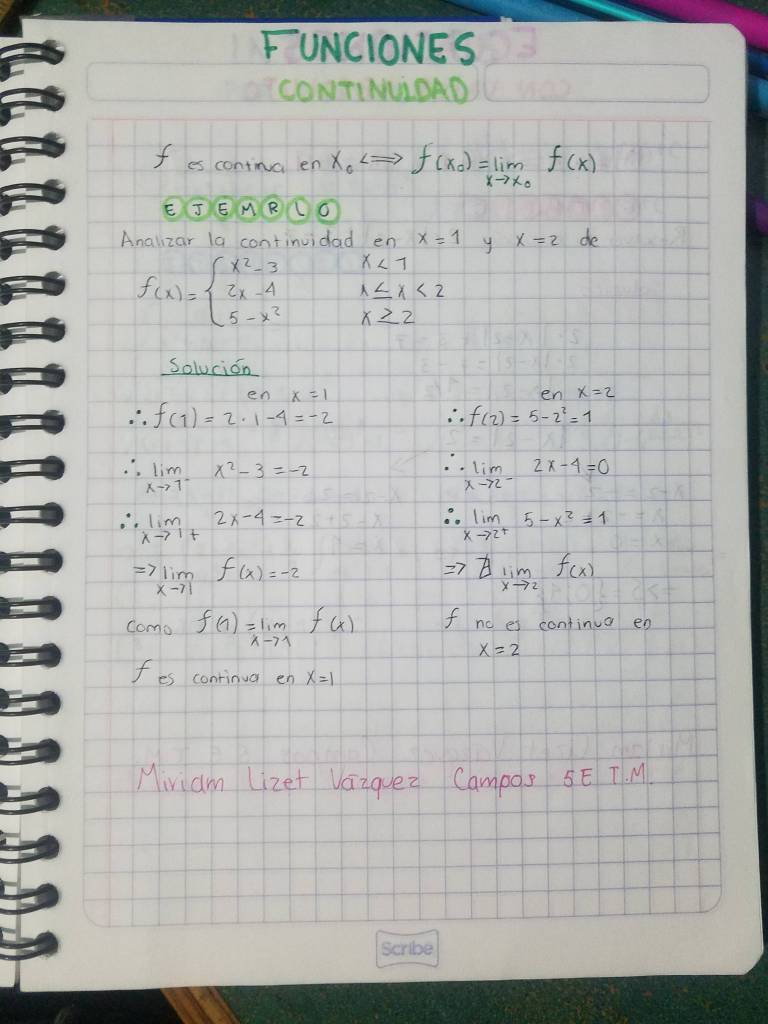 FUNCIONES
CONTINUIDAD
f es continua en x₀ <=> f(x₀) = lim x→x₀ f(x)
EJEMPLO
Analizar la continuidad en x=1 y x=2 de
f(x) = { x²-3 x<1
2x-4 x≤x<2
5-x² x≥2
Solución
en x=1
∴ f(1) = 2·1-4=-2
∴ lim x→1⁻ x²-3=-2
∴ lim x→1+ 2x-4=-2
=> lim x→1 f(x)=-2
como f(1) = lim x→1 f(x)
f es continua en x=1
en x=2
∴ f(2) = 5-2²=1
∴ lim x→2⁻ 2x-4=0
∴ lim x→2+ 5-x²=1
=> ∄ lim x→2 f(x)
f no es continua en
x=2
Miriam Lizet Vázquez Campos 5E T.M.
Scribe